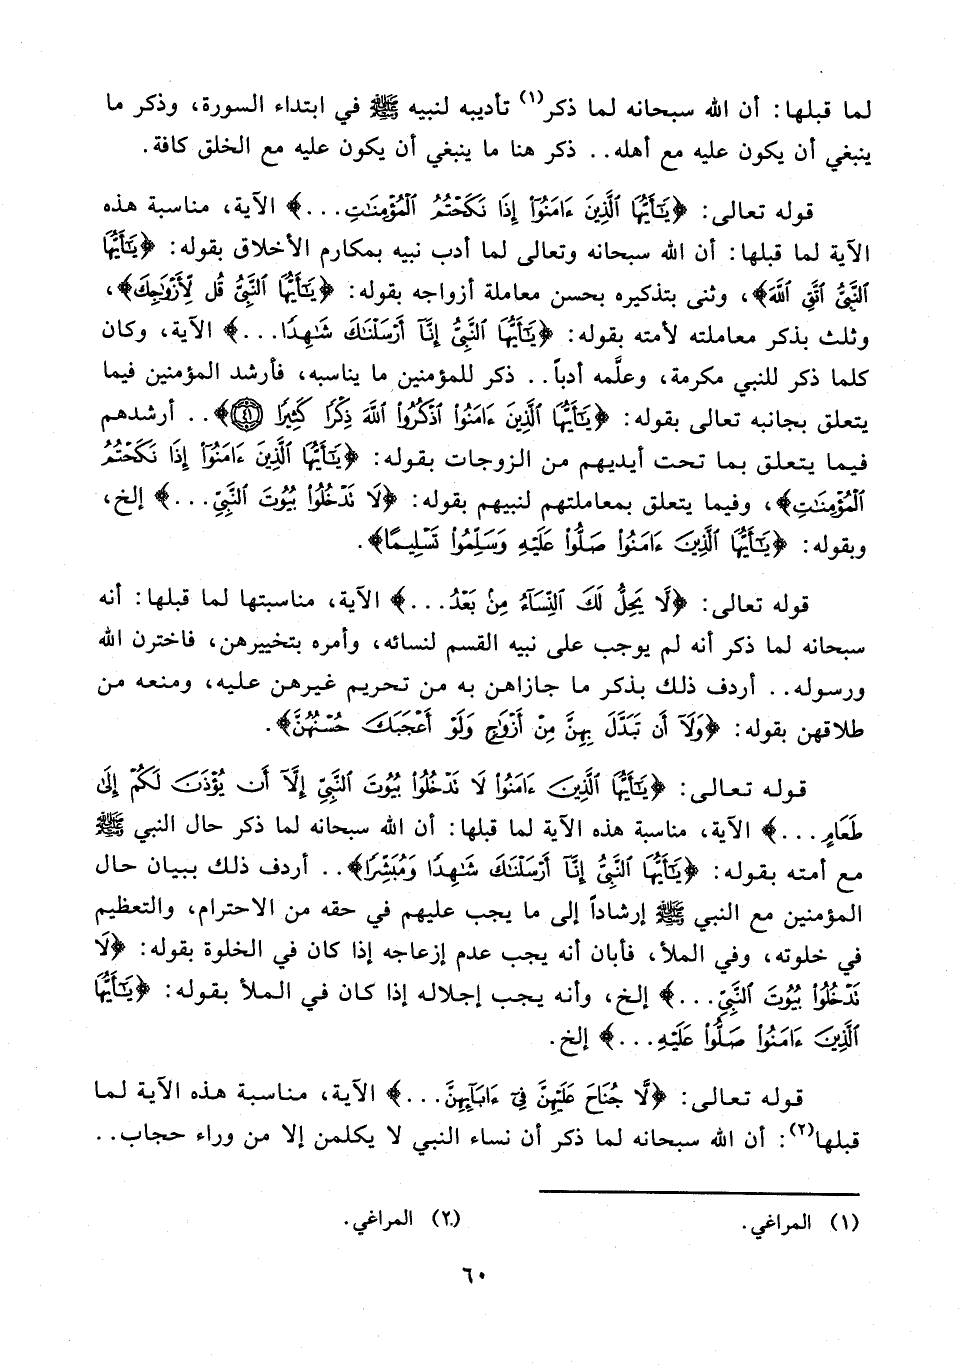 لما قبلها: أن الله سبحانه لما ذكر(١) تأديبه لنبيه ﷺ في ابتداء السورة، وذكر ما
ينبغي أن يكون عليه مع أهله.. ذكر هنا ما ينبغي أن يكون عليه مع الخلق كافة.
قوله تعالى: ﴿يَٰٓأَيُّهَا ٱلَّذِينَ ءَامَنُوٓاْ إِذَا نَكَحْتُمُ ٱلْمُؤْمِنَٰتِ...﴾ الآية، مناسبة هذه
الآية لما قبلها: أن الله سبحانه وتعالى لما أدب نبيه بمكارم الأخلاق بقوله: ﴿يَٰٓأَيُّهَا
ٱلنَّبِىُّ ٱتَّقِ ٱللَّهَ﴾، وثنى بتذكيره بحسن معاملة أزواجه بقوله: ﴿يَٰٓأَيُّهَا ٱلنَّبِىُّ قُل لِّأَزْوَٰجِكَ﴾،
وثلث بذكر معاملته لأمته بقوله: ﴿يَٰٓأَيُّهَا ٱلنَّبِىُّ إِنَّآ أَرْسَلْنَٰكَ شَٰهِدًا...﴾ الآية، وكان
كلما ذكر للنبي مكرمة، وعلَّمه أدباً.. ذكر للمؤمنين ما يناسبه، فأرشد المؤمنين فيما
يتعلق بجانبه تعالى بقوله: ﴿يَٰٓأَيُّهَا ٱلَّذِينَ ءَامَنُواْ ٱذْكُرُواْ ٱللَّهَ ذِكْرًا كَثِيرًا ٤١﴾.. أرشدهم
فيما يتعلق بما تحت أيديهم من الزوجات بقوله: ﴿يَٰٓأَيُّهَا ٱلَّذِينَ ءَامَنُوٓاْ إِذَا نَكَحْتُمُ
ٱلْمُؤْمِنَٰتِ﴾، وفيما يتعلق بمعاملتهم لنبيهم بقوله: ﴿لَا تَدْخُلُواْ بُيُوتَ ٱلنَّبِىِّ...﴾ إلخ،
وبقوله: ﴿يَٰٓأَيُّهَا ٱلَّذِينَ ءَامَنُواْ صَلُّواْ عَلَيْهِ وَسَلِّمُواْ تَسْلِيمًا﴾.
قوله تعالى: ﴿لَّا يَحِلُّ لَكَ ٱلنِّسَآءُ مِنۢ بَعْدُ...﴾ الآية، مناسبتها لما قبلها: أنه
سبحانه لما ذكر أنه لم يوجب على نبيه القسم لنسائه، وأمره بتخييرهن، فاخترن الله
ورسوله.. أردف ذلك بذكر ما جازاهن به من تحريم غيرهن عليه، ومنعه من
طلاقهن بقوله: ﴿وَلَآ أَن تَبَدَّلَ بِهِنَّ مِنْ أَزْوَٰجٍ وَلَوْ أَعْجَبَكَ حُسْنُهُنَّ﴾.
قوله تعالى: ﴿يَٰٓأَيُّهَا ٱلَّذِينَ ءَامَنُواْ لَا تَدْخُلُواْ بُيُوتَ ٱلنَّبِىِّ إِلَّآ أَن يُؤْذَنَ لَكُمْ إِلَىٰ
طَعَامٍ...﴾ الآية، مناسبة هذه الآية لما قبلها: أن الله سبحانه لما ذكر حال النبي ﷺ
مع أمته بقوله: ﴿يَٰٓأَيُّهَا ٱلنَّبِىُّ إِنَّآ أَرْسَلْنَٰكَ شَٰهِدًا وَمُبَشِّرًا﴾.. أردف ذلك ببيان حال
المؤمنين مع النبي ﷺ إرشاداً إلى ما يجب عليهم في حقه من الاحترام، والتعظيم
في خلوته، وفي الملأ، فأبان أنه يجب عدم إزعاجه إذا كان في الخلوة بقوله: ﴿لَا
تَدْخُلُواْ بُيُوتَ ٱلنَّبِىِّ...﴾ إلخ، وأنه يجب إجلاله إذا كان في الملأ بقوله: ﴿يَٰٓأَيُّهَا
ٱلَّذِينَ ءَامَنُواْ صَلُّواْ عَلَيْهِ...﴾ إلخ.
قوله تعالى: ﴿لَّا جُنَاحَ عَلَيْهِنَّ فِىٓ ءَابَآئِهِنَّ...﴾ الآية، مناسبة هذه الآية لما
قبلها(٢): أن الله سبحانه لما ذكر أن نساء النبي لا يكلمن إلا من وراء حجاب..
(١) المراغي. (٢) المراغي.
٦٠